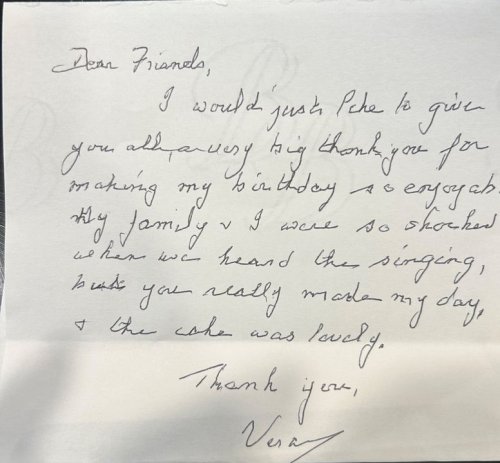 Dear Friends,
I would just like to give
you all, a very big thank you for
making my birthday so enjoyab
My family & I were so shocked
when we heard the singing,
but you really made my day,
& the cake was lovely.
Thank you,
Vera